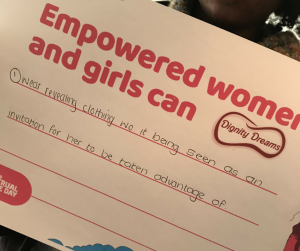 Empowered women
and girls can
① Wear revealing clothing w/o it being seen as an
invitation for her to be taken advantage of
Dignity Dreams
DAY